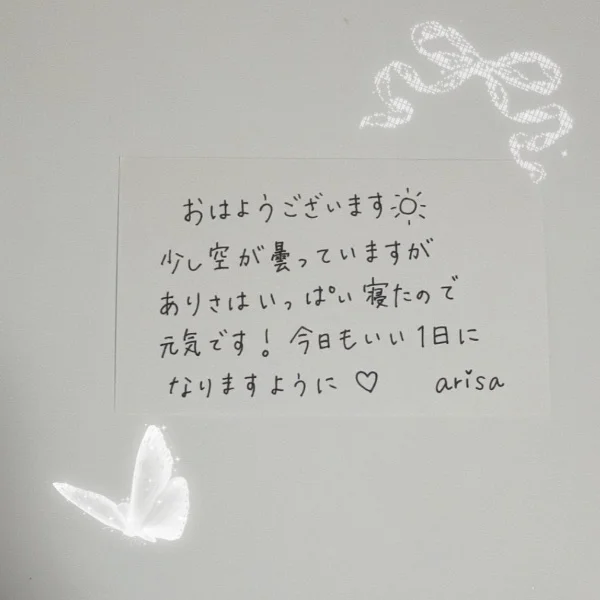 おはようございます☀
少し空が曇っていますが
ありさはいっぱい寝たので
元気です! 今日もいい1日に
なりますように♡ arisa